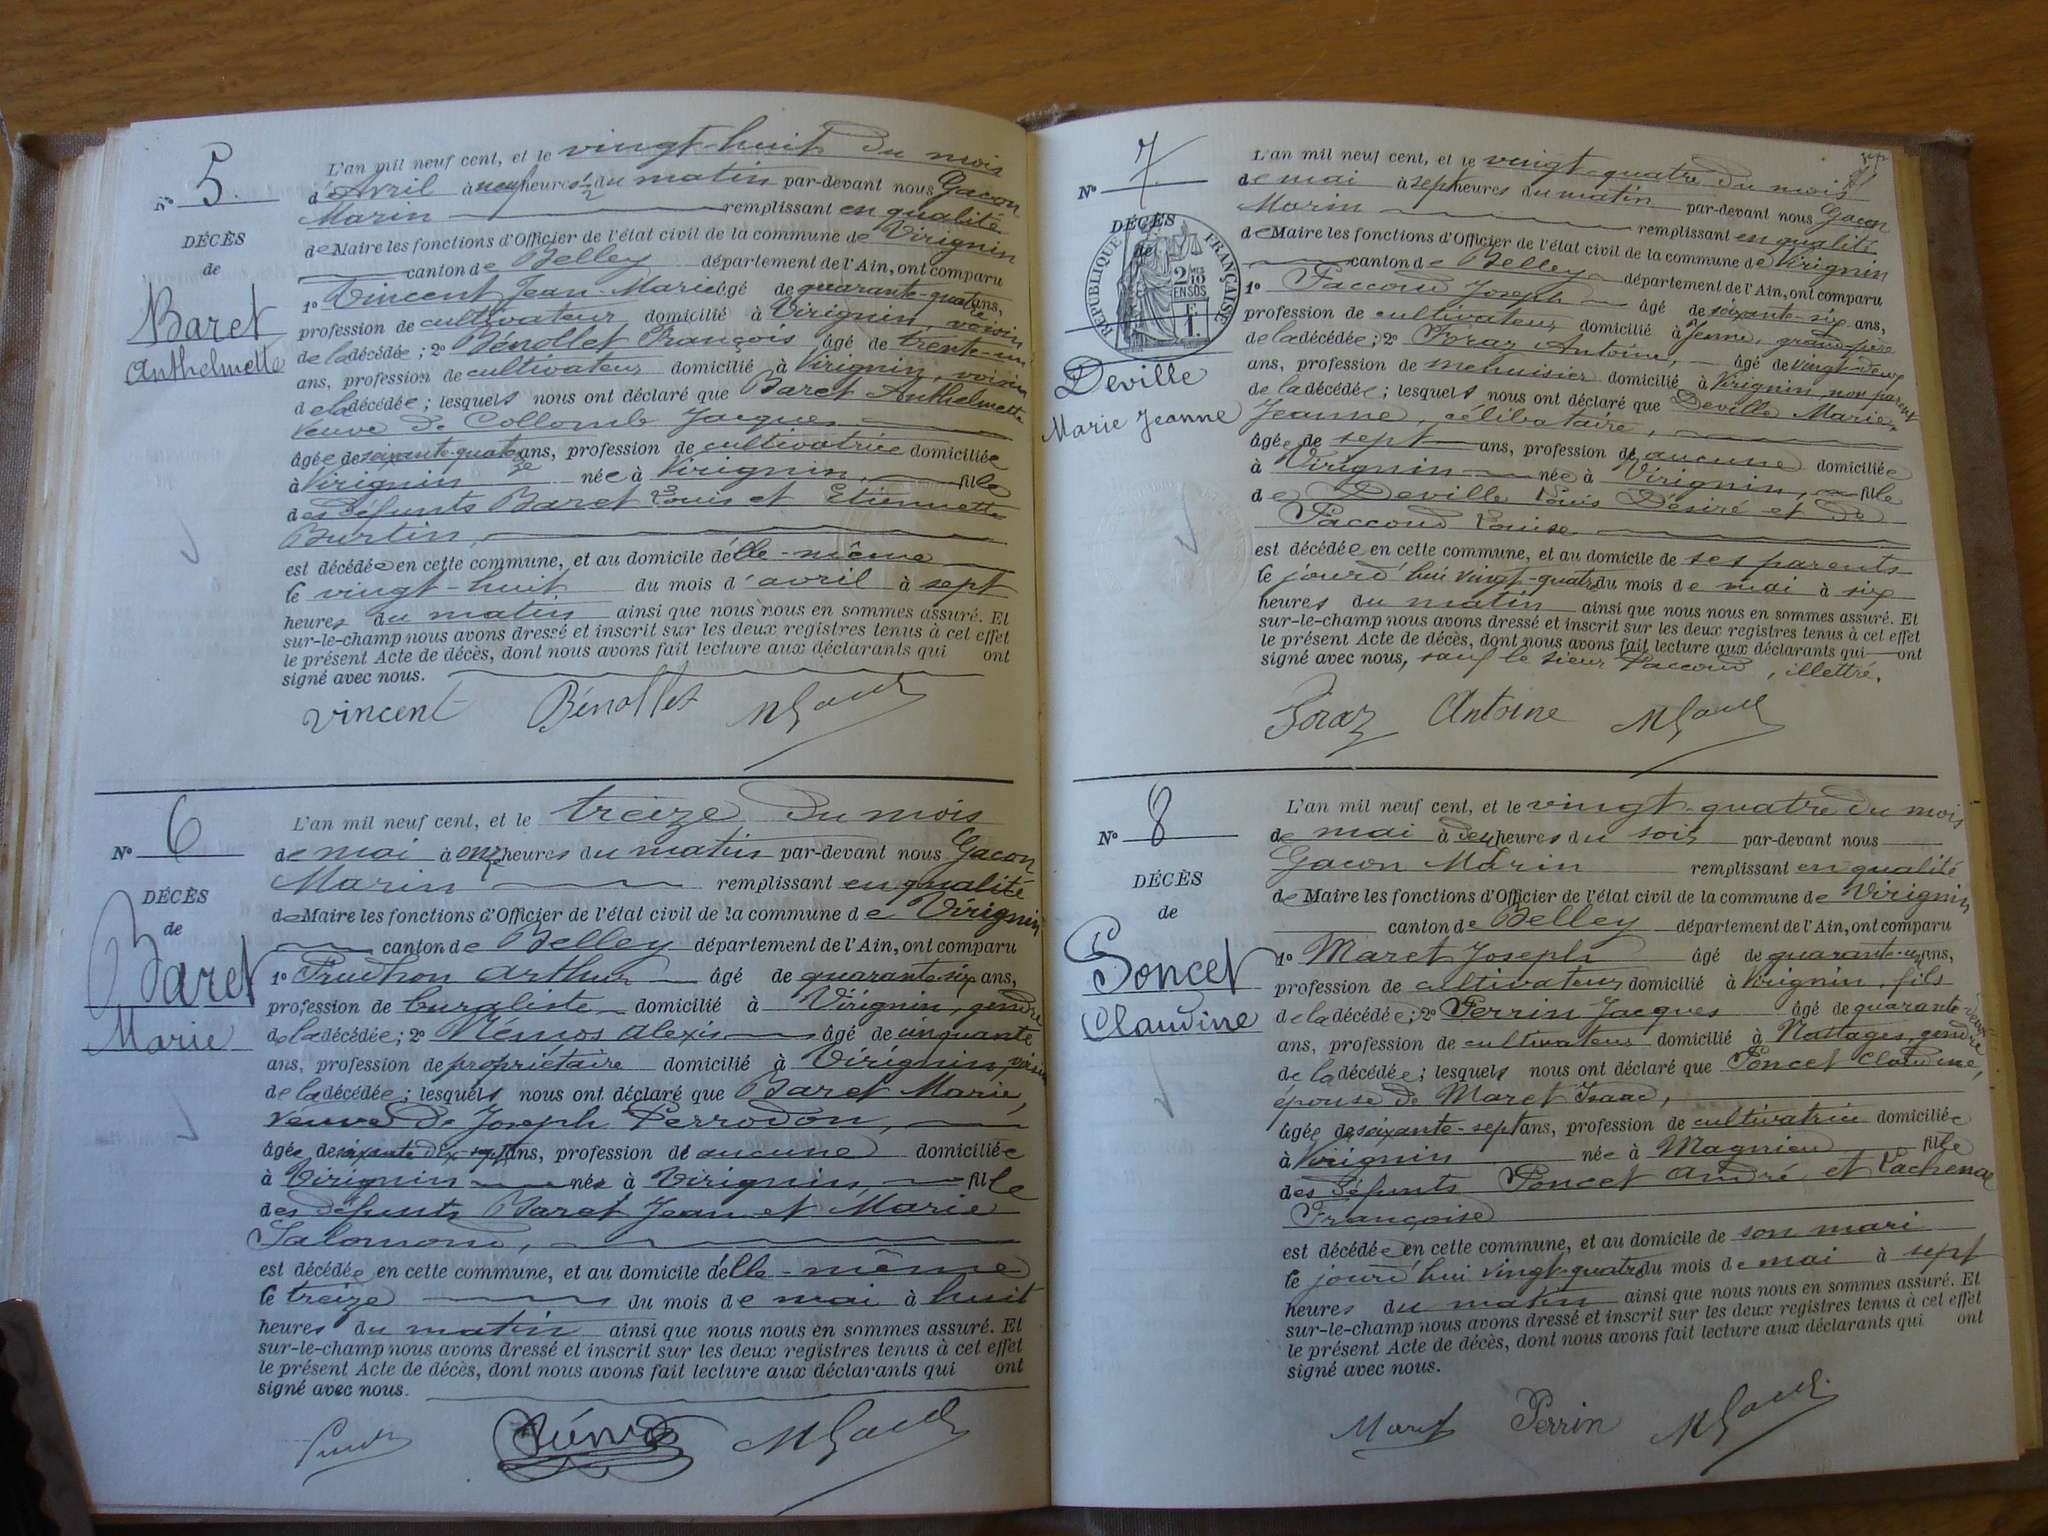 N° 5.
DÉCÈS
de
Baret
Anthelmette
L'an mil neuf cent, et le vingt-huit du mois
d'Avril à neuf heures 1/2 du matin par-devant nous Gacon
Marin remplissant en qualité
de Maire les fonctions d'Officier de l'état civil de la commune de Virignin
canton de Belley département de l'Ain, ont comparu
1° Vincent Jean-Marie âgé de quarante-quatre ans,
profession de cultivateur domicilié à Virignin, voisin
de la décédée; 2° Bénollet François âgé de trente-un
ans, profession de cultivateur domicilié à Virignin, voisin
de la décédée; lesquels nous ont déclaré que Baret Anthelmette
veuve de Collomb Jacques
âgée de soixante-quatorze ans, profession de cultivatrice domiciliée
à Virignin née à Virignin, fille
des défunts Baret Louis et Etiennette
Burtin,
est décédée en cette commune, et au domicile d'elle-même
le vingt-huit du mois d'avril à sept
heures du matin ainsi que nous nous en sommes assuré. Et
sur-le-champ nous avons dressé et inscrit sur les deux registres tenus à cet effet
le présent Acte de décès, dont nous avons fait lecture aux déclarants qui ont
signé avec nous.
Vincent Bénollet MGacon
N° 6
DÉCÈS
de
Baret
Marie
L'an mil neuf cent, et le treize du mois
de mai à onze heures du matin par-devant nous Gacon
Marin remplissant en qualité
de Maire les fonctions d'Officier de l'état civil de la commune de Virignin
canton de Belley département de l'Ain, ont comparu
1° Pruthon Arthur âgé de quarante-six ans,
profession de buraliste domicilié à Virignin, gendre
de la décédée; 2° Némos Alexis âgé de cinquante
ans, profession de propriétaire domicilié à Virignin, voisin
de la décédée; lesquels nous ont déclaré que Baret Marie,
veuve de Joseph Perrodon,
âgée de soixante dix-sept ans, profession de aucune domiciliée
à Virignin née à Virignin, fille
des défunts Baret Jean et Marie
Salomond,
est décédée en cette commune, et au domicile d'elle-même
le treize du mois de mai à huit
heures du matin ainsi que nous nous en sommes assuré. Et
sur-le-champ nous avons dressé et inscrit sur les deux registres tenus à cet effet
le présent Acte de décès, dont nous avons fait lecture aux déclarants qui ont
signé avec nous.
MGacon
N° 7.
DÉCÈS
de
RÉPUBLIQUE FRANÇAISE
2/10 EN SUS
1 F.
Deville
Marie Jeanne
L'an mil neuf cent, et le vingt-quatre du mois
de mai à sept heures du matin par-devant nous Gacon
Marin remplissant en qualité
de Maire les fonctions d'Officier de l'état civil de la commune de Virignin
canton de Belley département de l'Ain, ont comparu
1° Paccoud Joseph âgé de soixante-six ans,
profession de cultivateur domicilié à Yenne, grand-père
de la décédée; 2° Foraz Antoine, âgé de vingt-deux
ans, profession de menuisier domicilié à Virignin, non parent
de la décédée; lesquels nous ont déclaré que Deville Marie
Jeanne, célibataire,
âgée de sept ans, profession de aucune domiciliée
à Virignin née à Virignin, fille
de Deville Louis Désiré et de
Paccoud Louise
est décédée en cette commune, et au domicile de ses parents
le jourd'hui vingt-quatre du mois de mai à six
heures du matin ainsi que nous nous en sommes assuré. Et
sur-le-champ nous avons dressé et inscrit sur les deux registres tenus à cet effet
le présent Acte de décès, dont nous avons fait lecture aux déclarants qui ont
signé avec nous, sauf le sieur Paccoud, illettré.
Foraz Antoine MGacon
N° 8
DÉCÈS
de
Poncet
Claudine
L'an mil neuf cent, et le vingt-quatre du mois
de mai à deux heures du soir par-devant nous
Gacon Marin remplissant en qualité
de Maire les fonctions d'Officier de l'état civil de la commune de Virignin
canton de Belley département de l'Ain, ont comparu
1° Maret Joseph âgé de quarante-un ans,
profession de cultivateur domicilié à Virignin, fils
de la décédée; 2° Perrin Jacques âgé de quarante
ans, profession de cultivateur domicilié à Nattages, gendre
de la décédée; lesquels nous ont déclaré que Poncet Claudine,
épouse de Maret Isaac,
âgée de soixante-sept ans, profession de cultivatrice domiciliée
à Virignin née à Magnieu fille
des défunts Poncet André, et Lachenal
Françoise
est décédée en cette commune, et au domicile de son mari
le jourd'hui vingt-quatre du mois de mai à sept
heures du matin ainsi que nous nous en sommes assuré. Et
sur-le-champ nous avons dressé et inscrit sur les deux registres tenus à cet effet
le présent Acte de décès, dont nous avons fait lecture aux déclarants qui ont
signé avec nous.
Maret Perrin MGacon